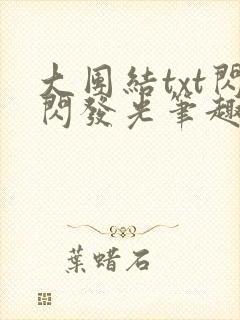 大團結txt閃
閃發光筆趣
葉蠟石